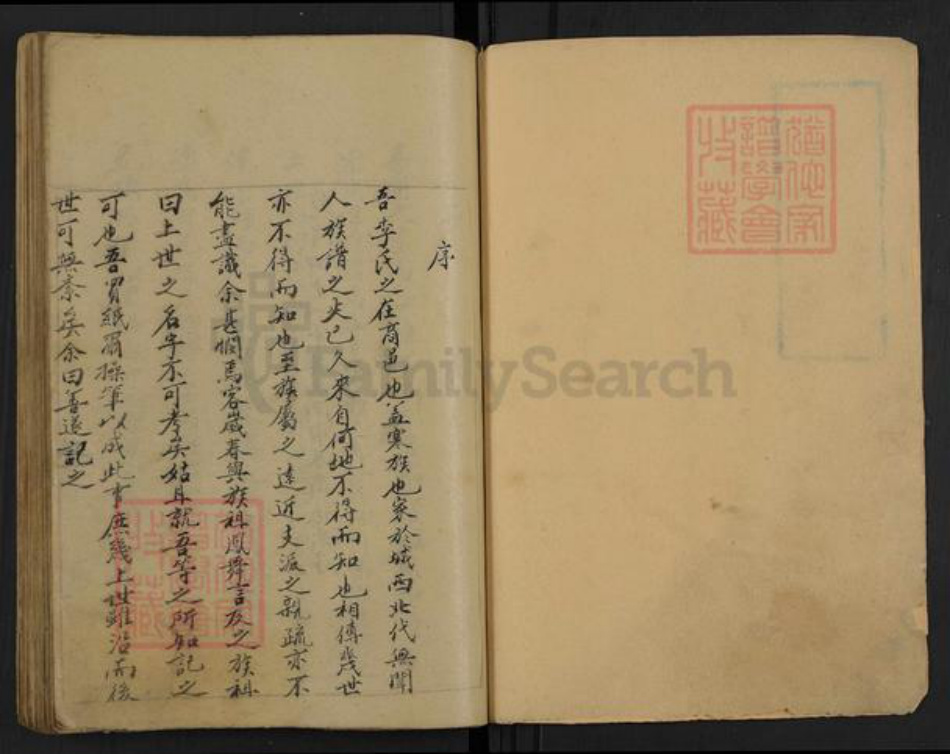 猶他家
譜學會
收藏
序
吾李氏之在商邑也蓋寒族也家於城西北代無聞
人族譜之失已久來自何地不得而知也相傳幾世
亦不得而知也至族屬之遠近支派之親疏亦不
能盡識余甚憫焉客歲春與族祖鳳舞言及之族祖
曰上世之名字不可考矣姑且就吾等之所知記之
可也吾買紙爾操筆以成此事庶幾上世雖沿而後
世可無紊矣余曰善遂記之
FamilySearch